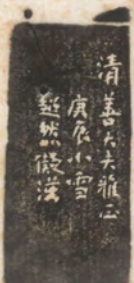 清善大夫雅正
庚辰小雪
超然儗漢